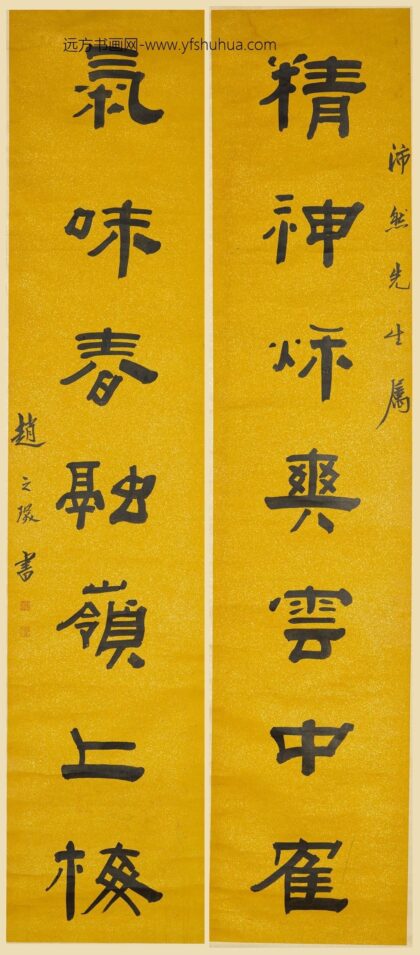 远方书画网-www.yfshuhua.com
沛然先生属
精神秌爽雲中寉
氣味春融嶺上梅
趙之琛書